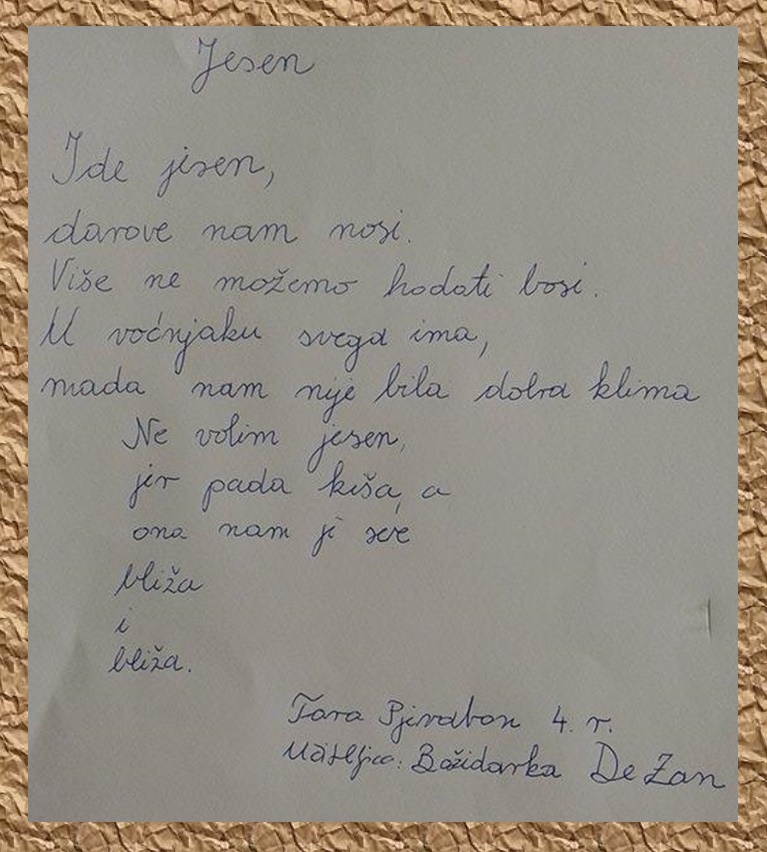 Jesen
Ide jesen,
darove nam nosi.
Više ne možemo hodati bosi.
U voćnjaku svega ima,
mada nam nije bila dobra klima
Ne volim jesen,
jer pada kiša, a
ona nam je sve
bliža
i
bliža.
Tara 4. r.
Učiteljica: Božidarka De Zan